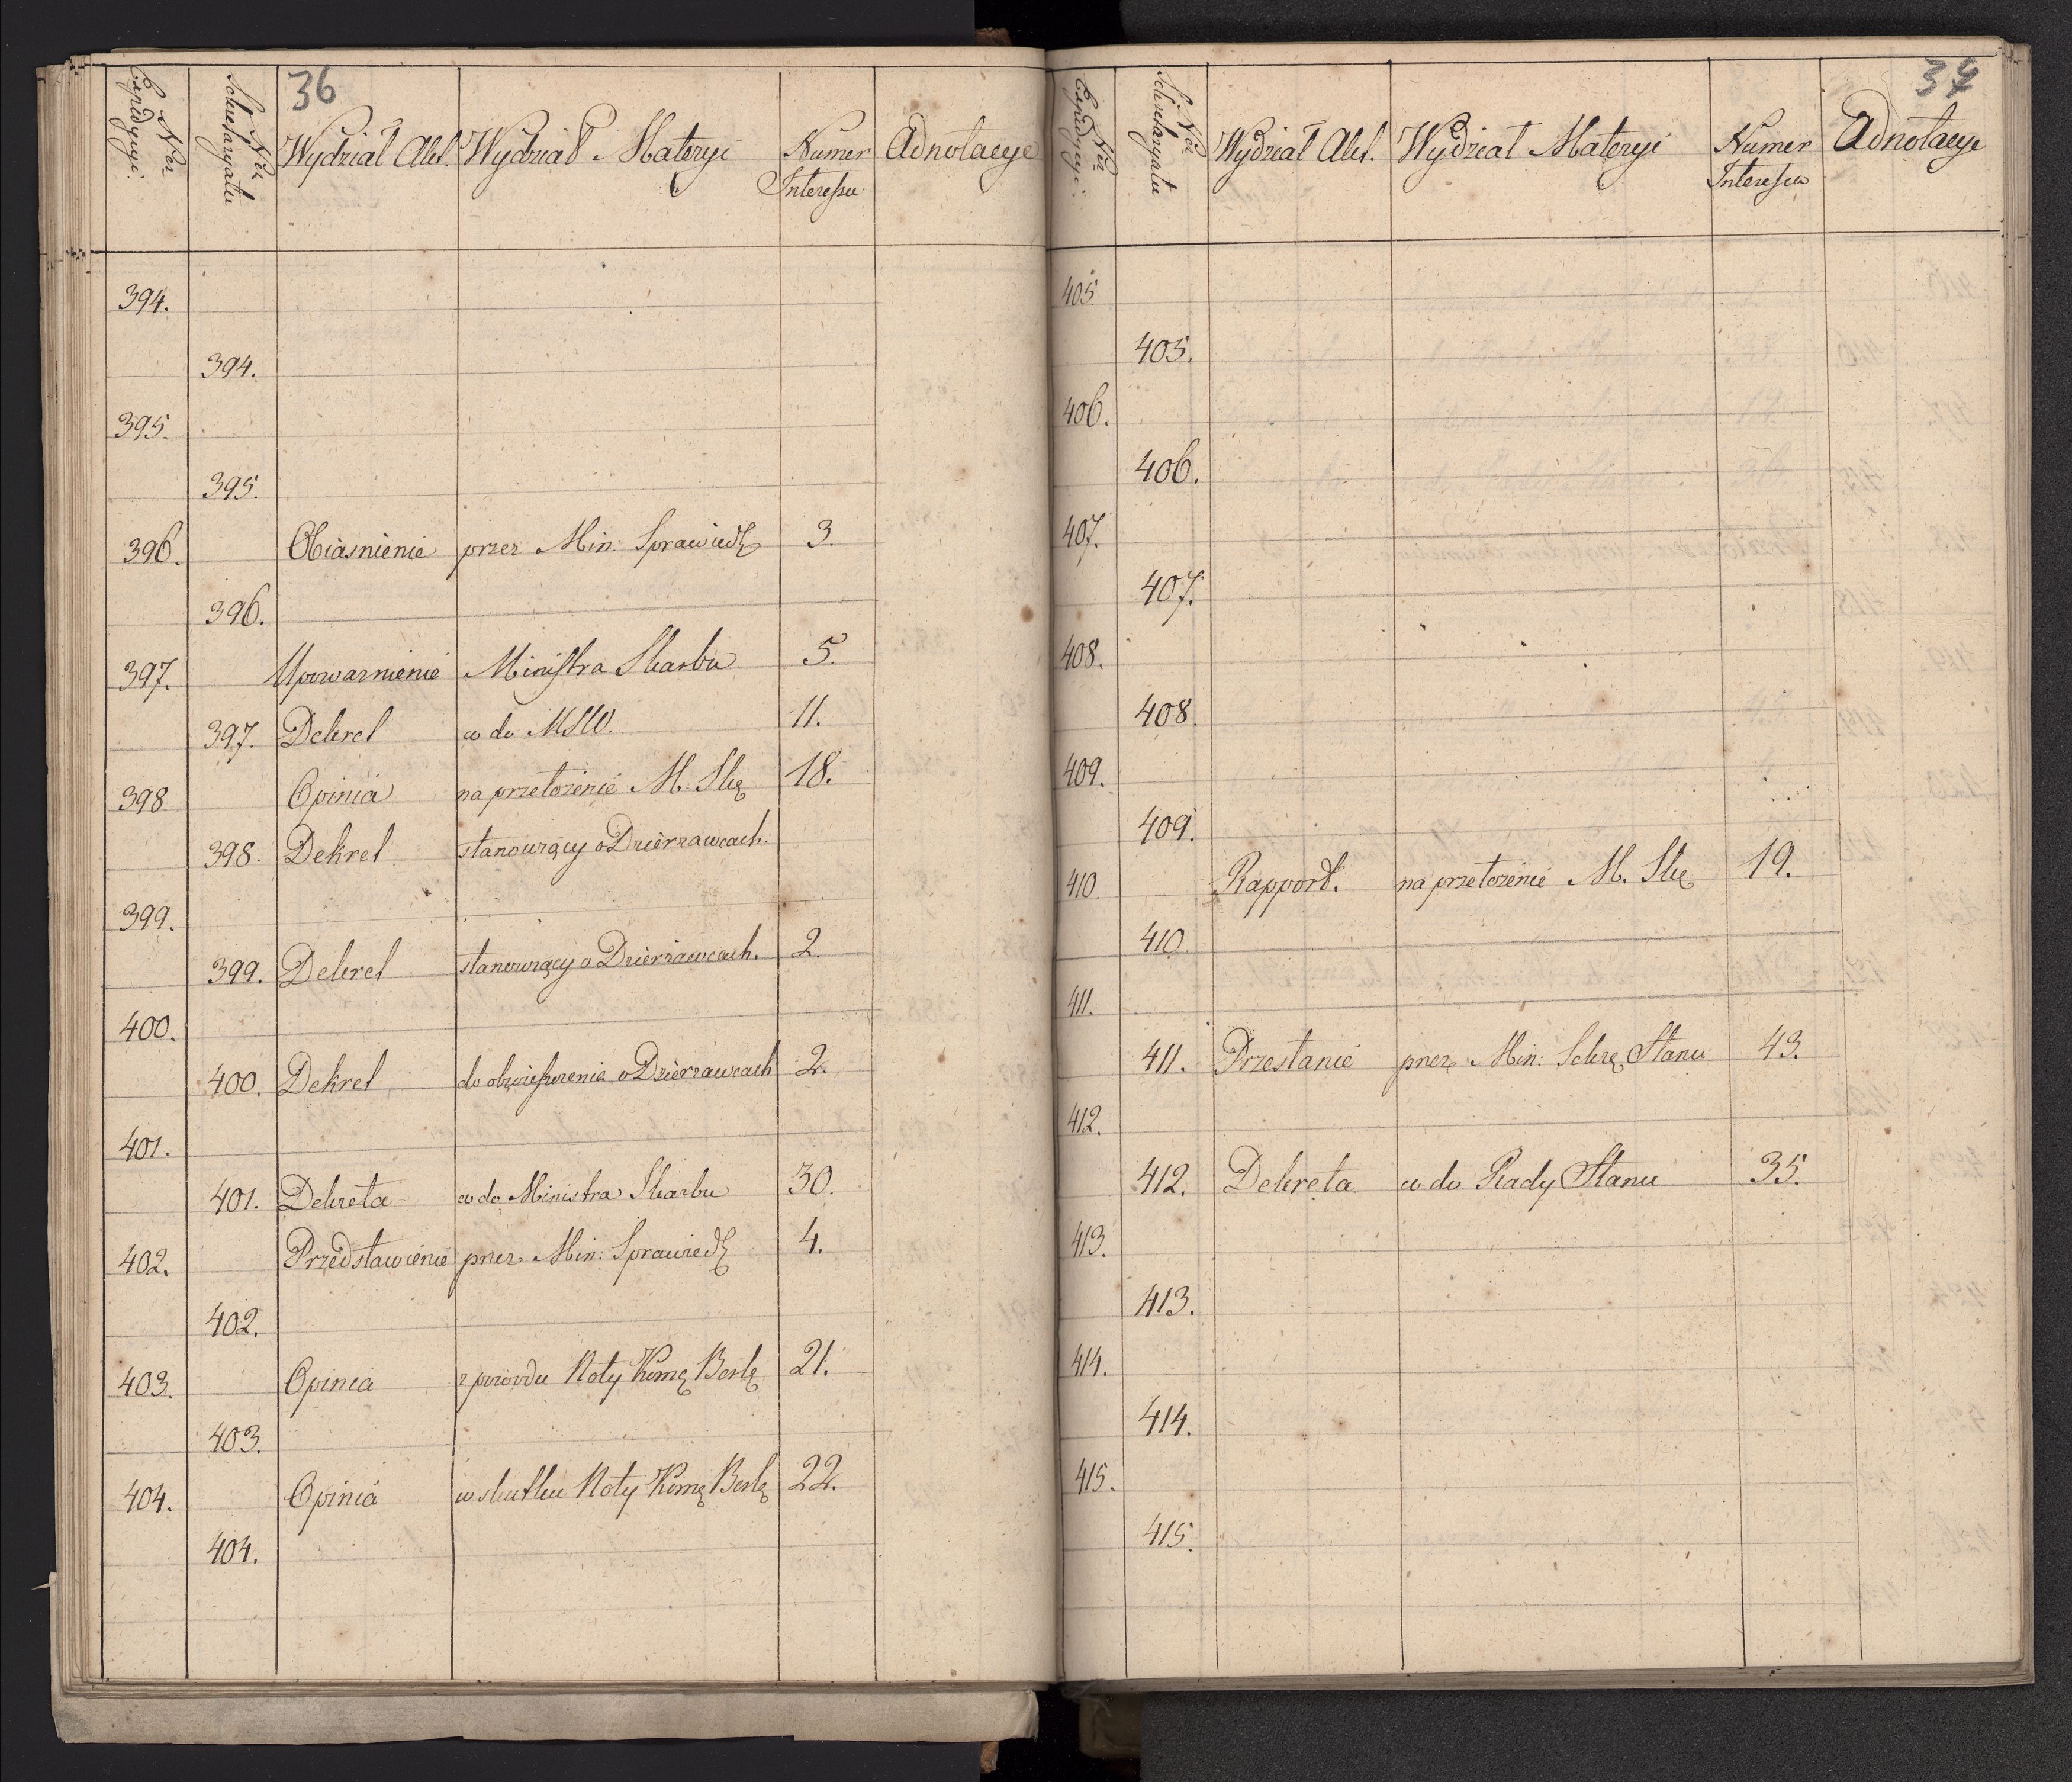 36
Ner Expedycyi.
Nru Sekretaryatu
Wydział Akt.
Wydział Materyi
Numer Interessu
Adnotacye
394.
394.
395.
395.
396. Obiasnienie przez Min: Sprawiedl 3.
396.
397. Upowaznienie Ministra Skarbu 5.
397. Dekret w do MSW. 11.
398 Opinia na przełożenie M. Sk 18.
398. Dekret stanowiący o Dzierzawcach.
399.
399. Dekret stanowiący o Dzierżawcach. 2.
400.
400. Dekret do obwieszczenia o Dzierzawcach 2.
401.
401. Dekreta w do Ministra Skarbu 30.
402. Przedstawienie przez Min: Sprawiedl 4.
402.
403. Opinia z powodu Noty 21.
403.
404. Opinia w skutku Noty 22.
404.
34
Ner Expedycyi:
Nru Sekretaryatu
Wydział Akt.
Wydział Materyi
Numer Interessu
Adnotacye
405
405.
406.
406.
407.
407.
408.
408.
409.
409.
410 Rapport. na przełożenie M. Sk 19.
410.
411.
411. Przesłanie przez Min: Sekr Stanu 43.
412.
412. Dekreta w do Rady Stanu 35.
413.
413.
414.
414.
415.
415.